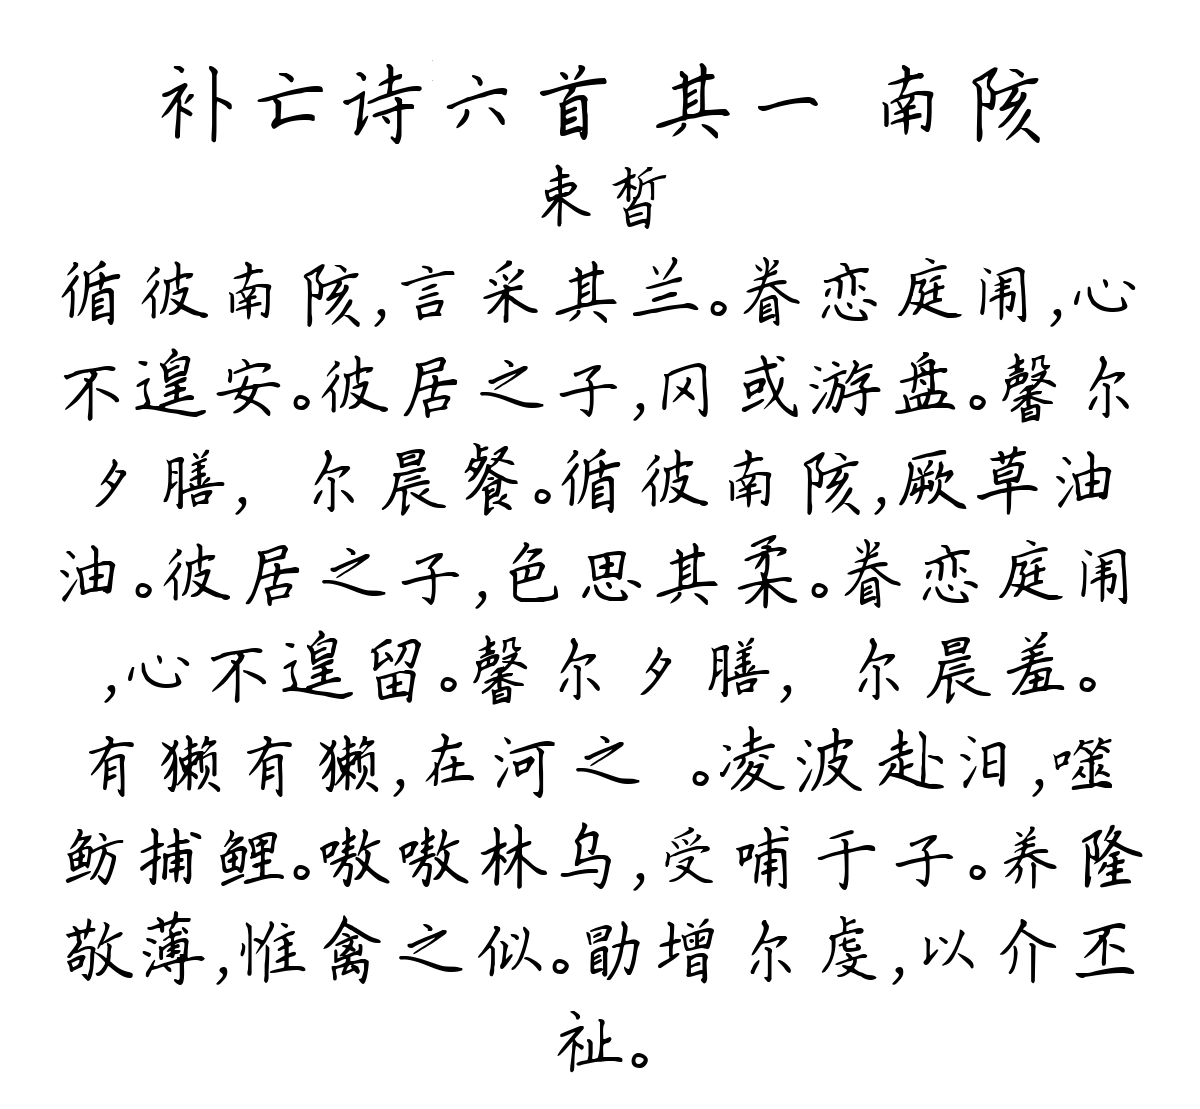 补亡诗六首 其一 南陔
束皙
循彼南陔,言采其兰。眷恋庭闱,心
不遑安。彼居之子,冈或游盘。馨尔
夕膳, 尔晨餐。循彼南陔,厥草油
油。彼居之子,色思其柔。眷恋庭闱
,心不遑留。馨尔夕膳, 尔晨羞。
有獭有獭,在河之 。凌波赴汩,噬
鲂捕鲤。嗷嗷林乌,受哺于子。养隆
敬薄,惟禽之似。勖增尔虔,以介丕
祉。